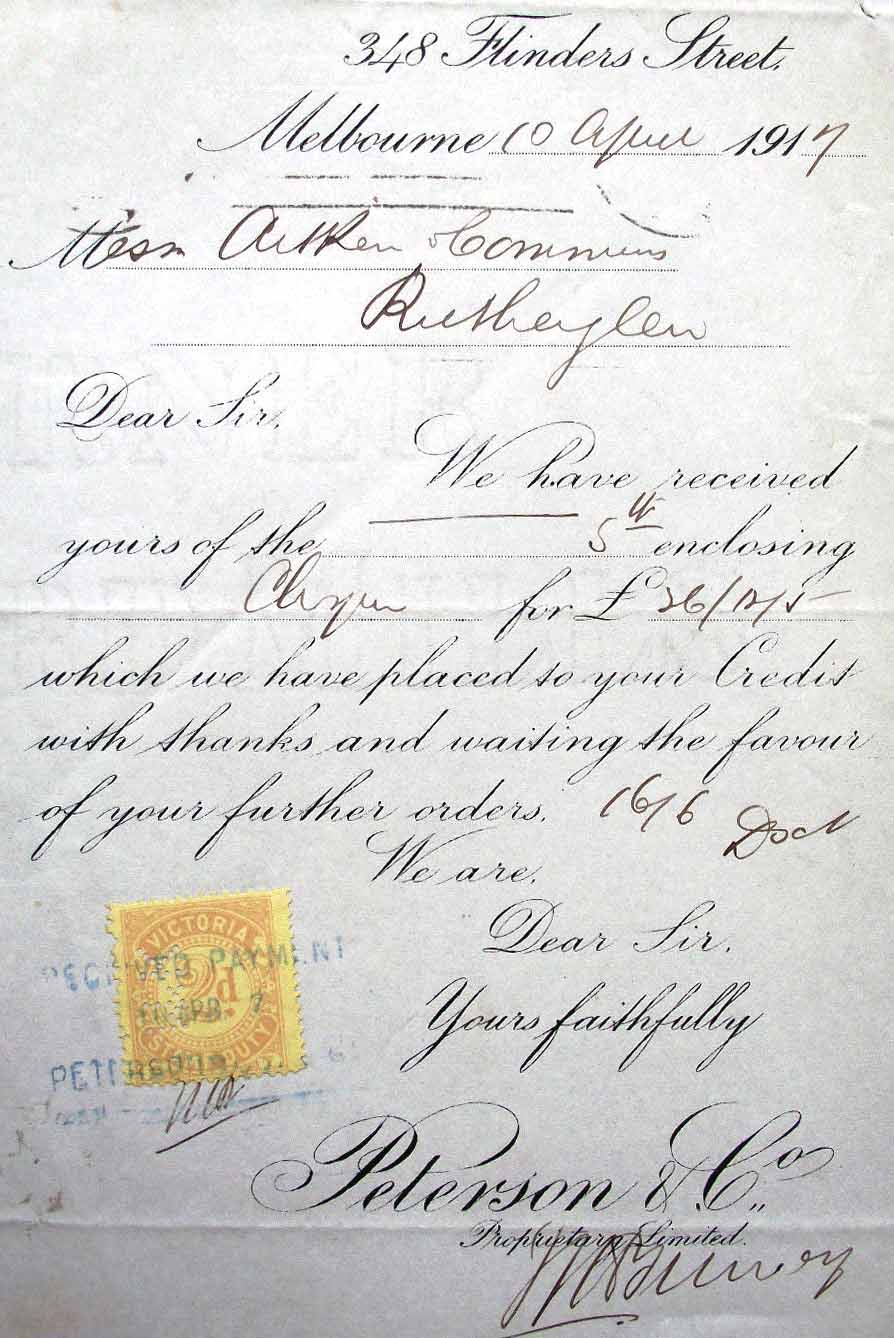 348 Flinders Street.
Melbourne 10 April 1917
Messrs Aitken & Commins
Rutherglen
Dear Sir.
We have received
yours of the 5th enclosing
Cheque for £ 26/12/5
which we have placed to your Credit
with thanks and waiting the favour
of your further orders. 16/6 Dsct
We are.
Dear Sir.
VICTORIA
RECEIVED PAYMENT
2d
10 APR. 7
Yours faithfully
STAMP DUTY
PETERSON
Peterson & Co.,
Proprietary Limited.